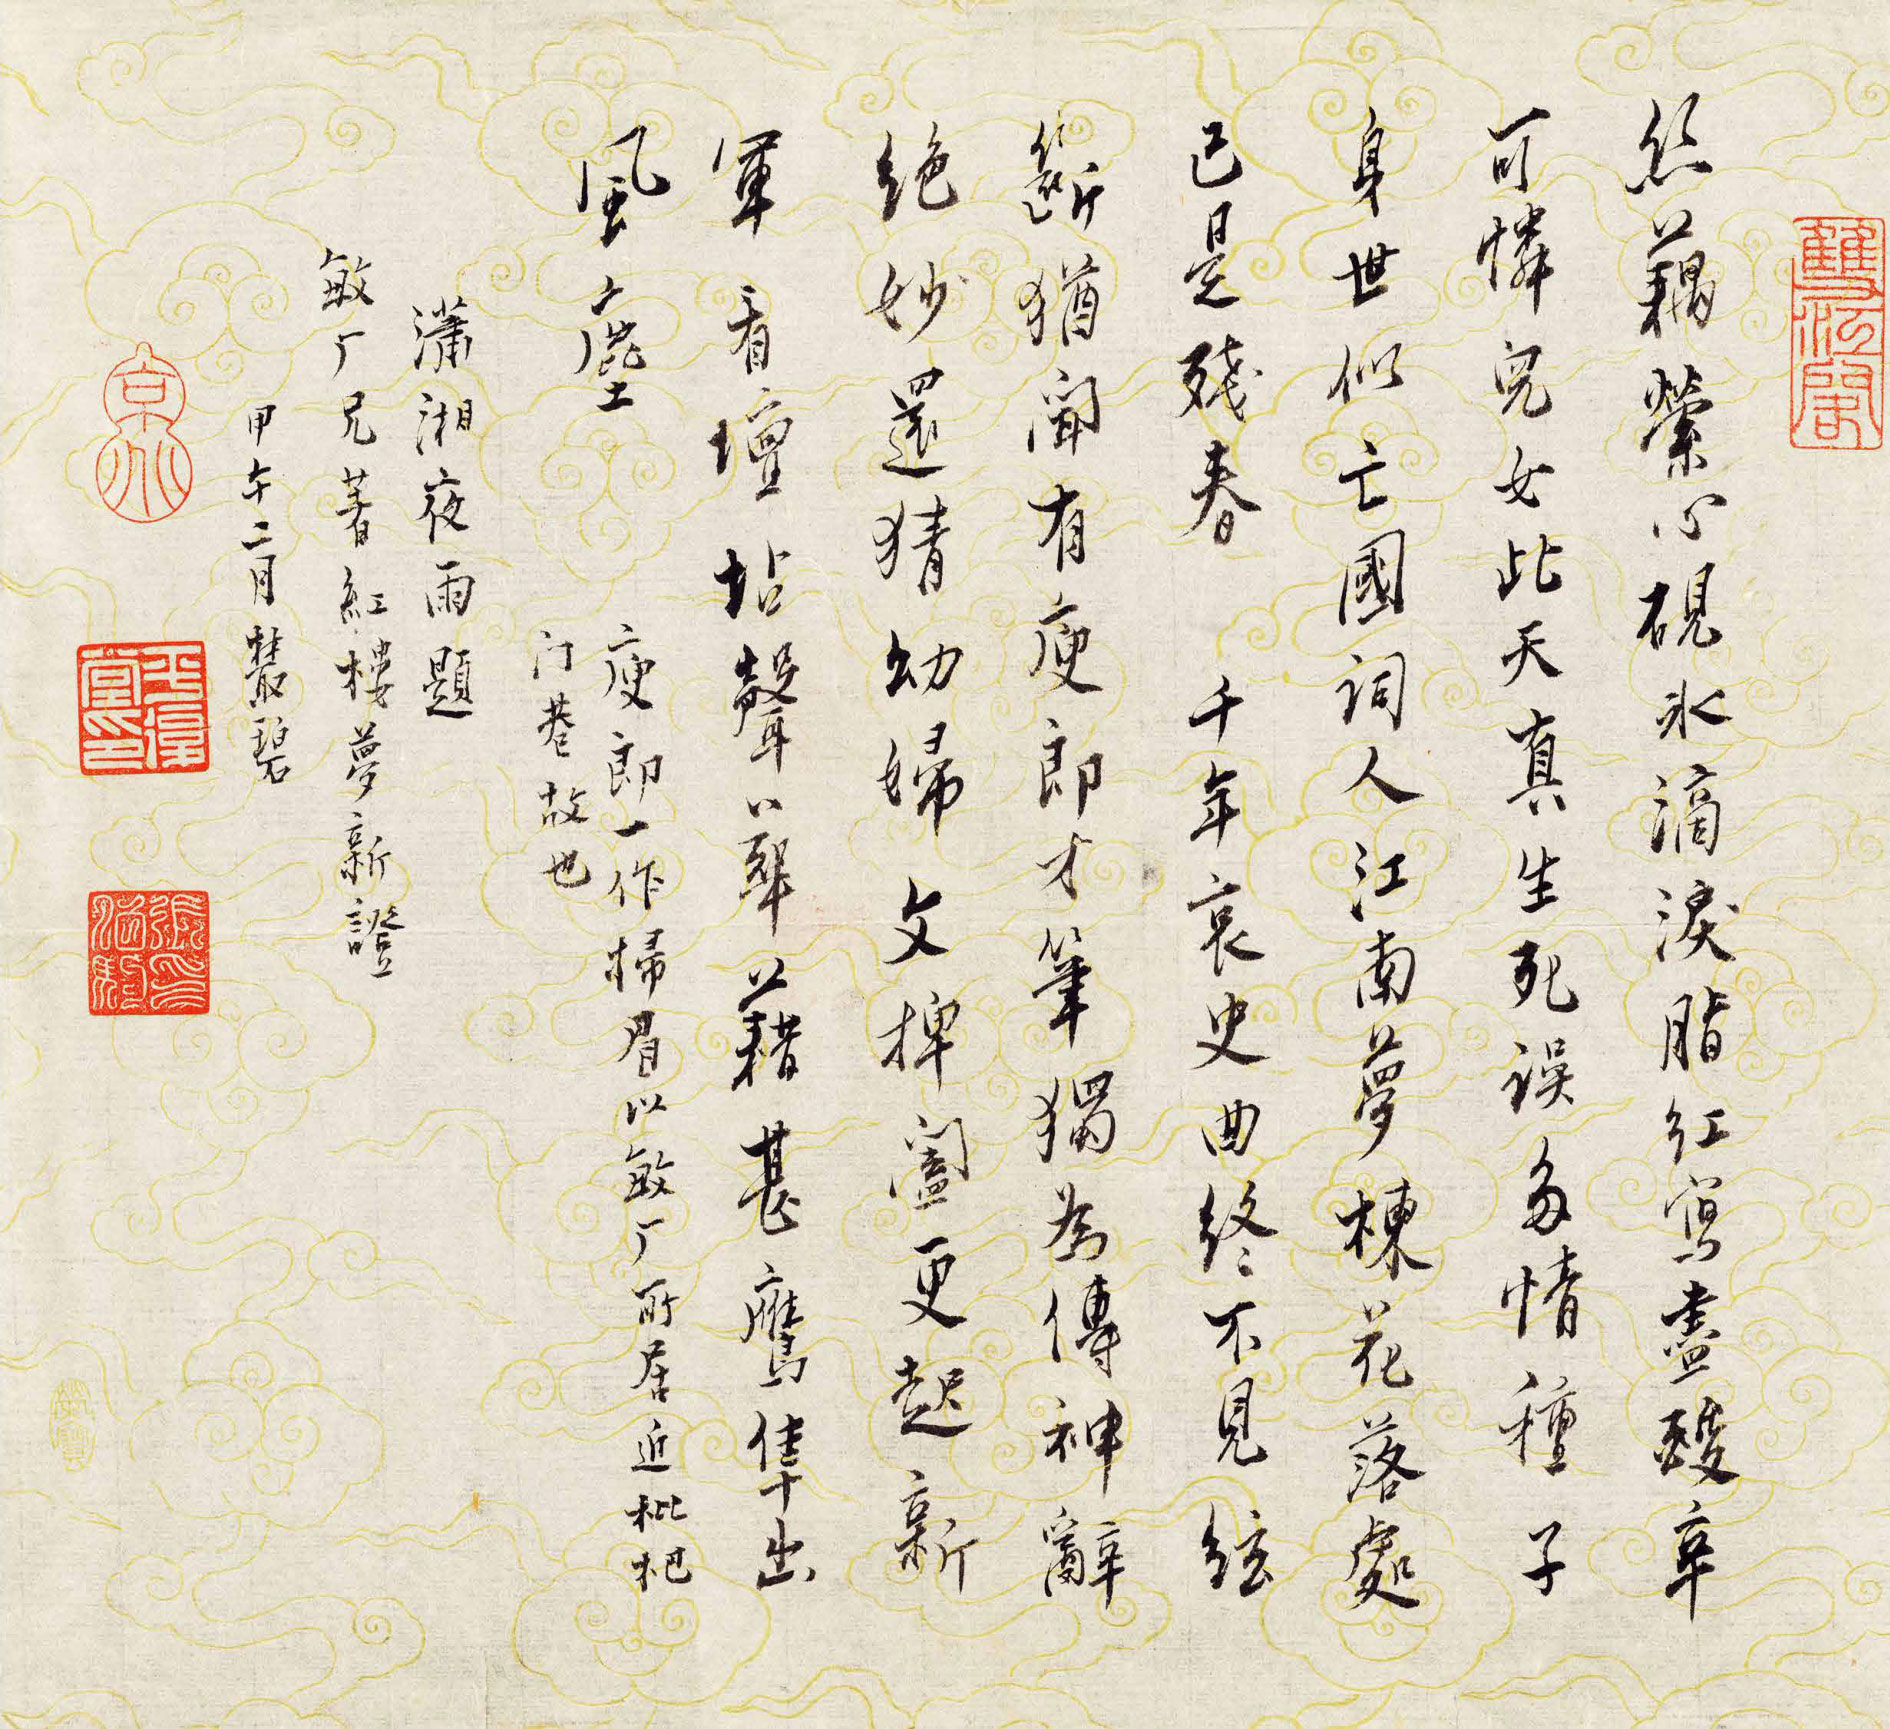 丝藕縈心硯冰滴淚脂红寫盡酸辛
可憐兒女此天真生死误多情種子
身世似亡國词人江南夢楝花落處
已是殘春 千年哀史曲终不見弦
斷猶聞有瘦郎才筆獨為傳神辭
绝妙還猜幼婦文捭闔更起新
軍看壇坫聲華藉甚鷹隼出
風塵
瘦郎一作掃眉以敏厂所居近枇杷
门巷故也
瀟湘夜雨題
敏厂兄著紅樓夢新證
甲午二月叢碧
京兆
平復堂印
張伯駒